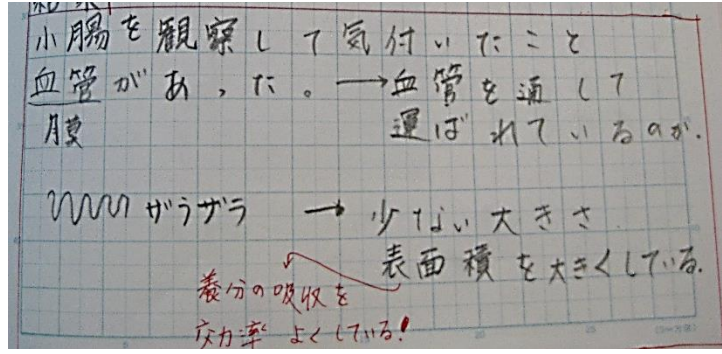 小腸を観察して気付いたこと
血管があった。→血管を通して
膜 運ばれているのが.
ザラザラ → 少ない大きさ
表面積を大きくしている.
養分の吸収を
効率よくしている!